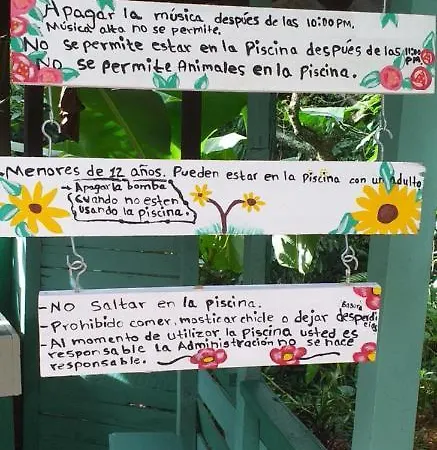 Apagar la música despúes de las 10:00 PM.
Música alta no se permite.
No se permite estar en la Piscina despúes de las 11:00 PM
No se permite Animales en la Piscina.
Menores de 12 años. Pueden estar en la Piscina con un Adulto
→ Apagar la bomba
Cuando no esten
usando la piscina.
-No Saltar en la piscina.
-Prohibido comer, masticar chicle o dejar desperdicios
Basura
-Al momento de utilizar la Piscina usted es
responsable La Administración no se hace
responsable.